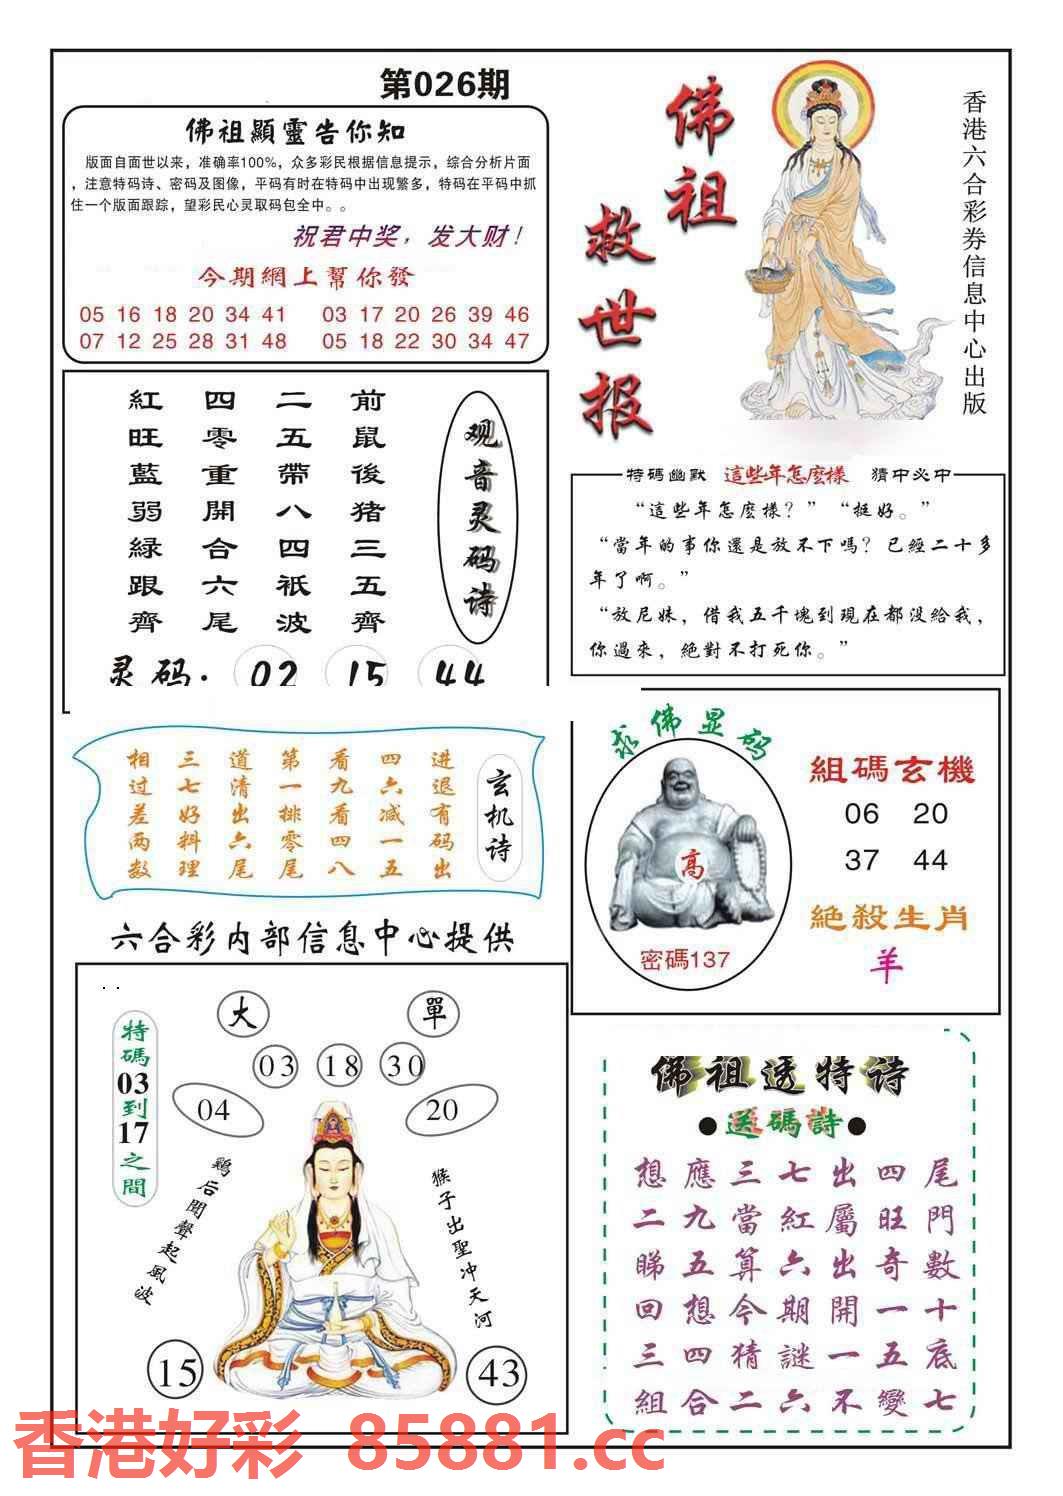 第026期
佛祖顯靈告你知
版面自面世以来，准确率100%，众多彩民根据信息提示，综合分析片面
，注意特码诗、密码及图像，平码有时在特码中出现繁多，特码在平码中抓
住一个版面跟踪，望彩民心灵取码包全中。。
祝君中奖，发大财！
今期網上幫你發
05 16 18 20 34 41 03 17 20 26 39 46
07 12 25 28 31 48 05 18 22 30 34 47
佛祖
救世报
香港六合彩券信息中心出版
观音灵码诗
前鼠後猪三五齊
二五帶八四祇波
四零重開合六尾
紅旺藍弱緑跟齊
灵码：02 15 44
特碼幽默 這些年怎麼樣 猜中必中
“這些年怎麼樣？”“挺好。”
“當年的事你還是放不下嗎？已經二十多
年了啊。”
“放尼妹，借我五千塊到現在都没給我，
你過來，絶對不打死你。”
玄机诗
进退有码出
四六减一五
看九看四八
第一排零尾
道清出六尾
三七好料理
相过差两数
求佛显码
高
密碼137
組碼玄機
06 20
37 44
絕殺生肖
羊
六合彩内部信息中心提供
大 單
03 18 30
04 20
特碼03到17之間
鷄后聞聲起風波
猴子出聖冲天河
15 43
佛祖透特诗
●送碼詩●
想應三七出四尾
二九當紅屬旺門
睇五算六出奇數
回想今期開一十
三四猜謎一五底
組合二六不變七
香港好彩 85881.cc